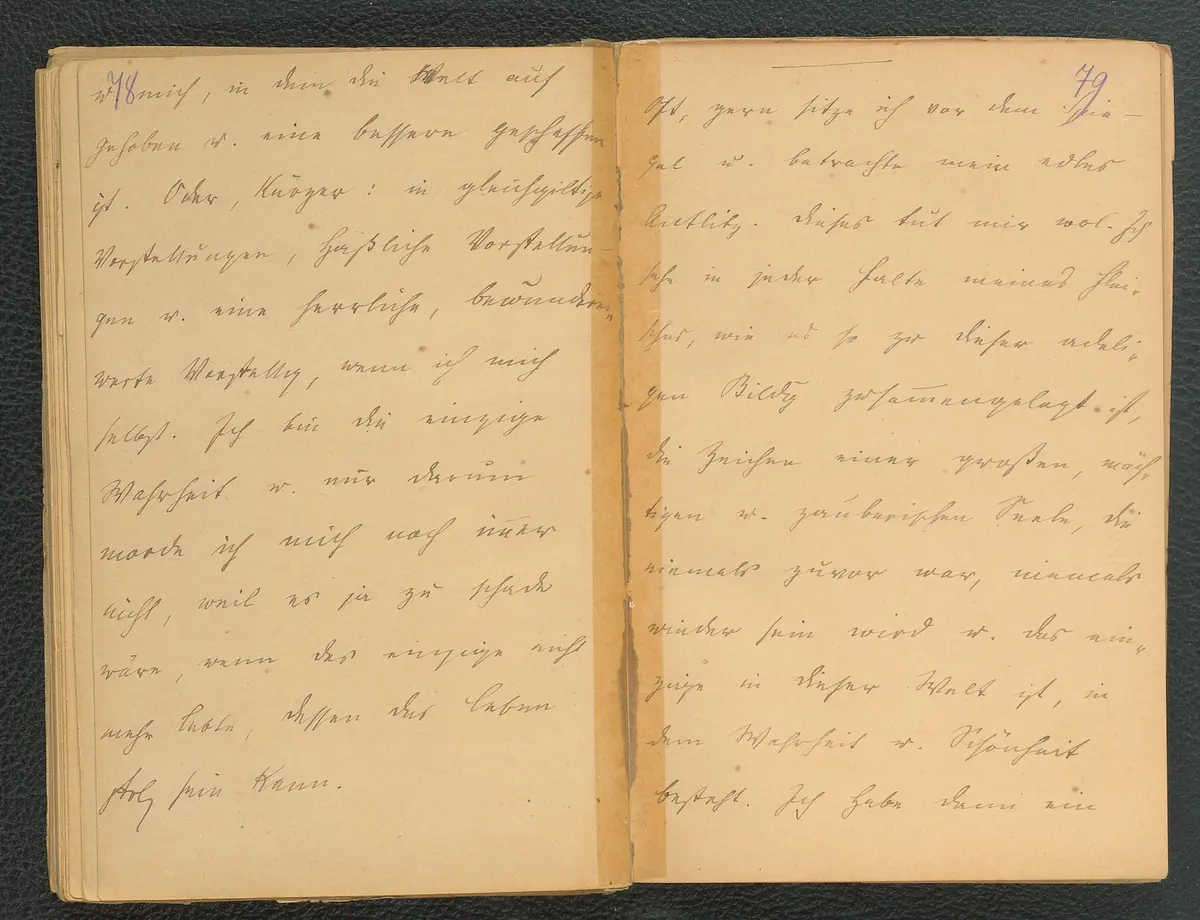 78
u. mich, in dem die Welt auf
gehoben u. eine bessere geschaffen
ist. Oder, Kürzer: in gleichgiltige
Vorstellungen, häßliche Vorstellun-
gen u. eine herrliche, bewunderns-
werte Vorstellg, wenn ich mich
selbst. Ich bin die einzige
Wahrheit u. nur darum
morde ich mich noch im̅er
nicht, weil es ja zu schade
wäre, wenn das einzige nicht
mehr lebte, dessen das Leben
stolz sein kann.
79
Oft, gern sitze ich vor dem Spie-
gel u. betrachte mein edles
Antlitz. Dieses tut mir wol. Ich
sehe in jeder Falte meines Flei-
sches, wie es so zu dieser adeli-
gen Bildg zusam̅engelegt ist,
die Zeichen einer großen, mäch-
tigen u. zauberischen Seele, die
niemals zuvor war, niemals
wieder sein wird u. das ein-
zige in dieser Welt ist, in
dem Wahrheit u. Schönheit
besteht. Ich habe denn ein